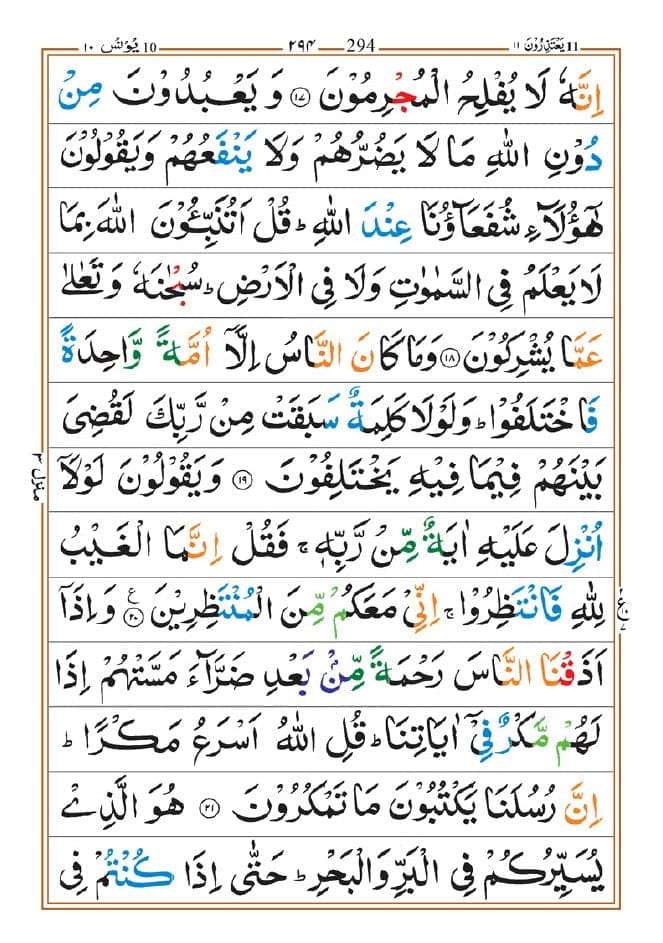 ۱۱ يَعْتَذِرُوْنَ 11 294 ۲۹۴ 10 يُوْنُس ۱۰
اِنَّهٗ لَا يُفْلِحُ الْمُجْرِمُوْنَ ۱۷ وَ يَعْبُدُوْنَ مِنْ
دُوْنِ اللّٰهِ مَا لَا يَضُرُّهُمْ وَلَا يَنْفَعُهُمْ وَيَقُوْلُوْنَ
هٰٓؤُلَآءِ شُفَعَآؤُنَا عِنْدَ اللّٰهِ ؕ قُلْ اَتُنَبِّـُٔوْنَ اللّٰهَ بِمَا
لَا يَعْلَمُ فِى السَّمٰوٰتِ وَلَا فِى الْاَرْضِ ؕ سُبْحٰنَهٗ وَتَعٰلٰى
عَمَّا يُشْرِكُوْنَ ۱۸ وَمَا كَانَ النَّاسُ اِلَّاۤ اُمَّةً وَّاحِدَةً
فَاخْتَلَفُوْا ؕ وَلَوْلَا كَلِمَةٌ سَبَقَتْ مِنْ رَّبِّكَ لَقُضِىَ
بَيْنَهُمْ فِيْمَا فِيْهِ يَخْتَلِفُوْنَ ۱۹ وَيَقُوْلُوْنَ لَوْلَاۤ
اُنْزِلَ عَلَيْهِ اٰيَةٌ مِّنْ رَّبِّهٖ ۚ فَقُلْ اِنَّمَا الْغَيْبُ
لِلّٰهِ فَانْتَظِرُوْا ۚ اِنِّىْ مَعَكُمْ مِّنَ الْمُنْتَظِرِيْنَ ۲۰ ع وَاِذَاۤ
اَذَقْنَا النَّاسَ رَحْمَةً مِّنْۢ بَعْدِ ضَرَّآءَ مَسَّتْهُمْ اِذَا
لَهُمْ مَّكْرٌ فِىْۤ اٰيَاتِنَا ؕ قُلِ اللّٰهُ اَسْرَعُ مَكْرًا ؕ
اِنَّ رُسُلَنَا يَكْتُبُوْنَ مَا تَمْكُرُوْنَ ۲۱ هُوَ الَّذِىْ
يُسَيِّرُكُمْ فِى الْبَرِّ وَالْبَحْرِ ؕ حَتّٰٓى اِذَا كُنْتُمْ فِى
منزل ۳